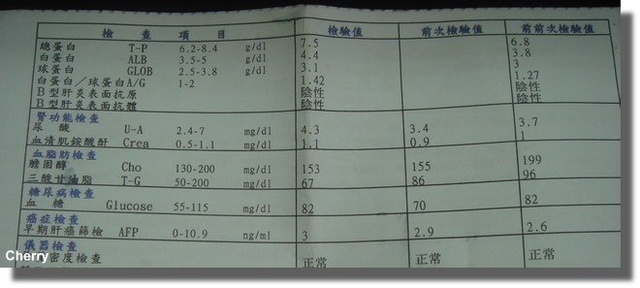 檢 查 項 目 檢驗值 前次檢驗值 前前次檢驗值
總蛋白 T-P 6.2-8.4 g/dl 7.5 6.8
白蛋白 ALB 3.5-5 g/dl 4.4 3.8
球蛋白 GLOB 2.5-3.8 g/dl 3.1 3
白蛋白/球蛋白A/G 1-2 1.42 1.27
B型肝炎表面抗原 陰性 陰性
B型肝炎表面抗體 陰性 陰性
腎功能檢查
尿 酸 U-A 2.4-7 mg/dl 4.3 3.4 3.7
血清肌銨酸酐 Crea 0.5-1.1 mg/dl 1.1 0.9 1
血脂肪檢查
膽固醇 Cho 130-200 mg/dl 153 155 199
三酸甘油脂 T-G 50-200 mg/dl 67 86 96
糖尿病檢查
血 糖 Glucose 55-115 mg/dl 82 70 82
癌症檢查
早期肝癌篩檢 AFP 0-10.9 ng/ml 3 2.9 2.6
儀器檢查
密度檢查 正常 正常 正常
Cherry